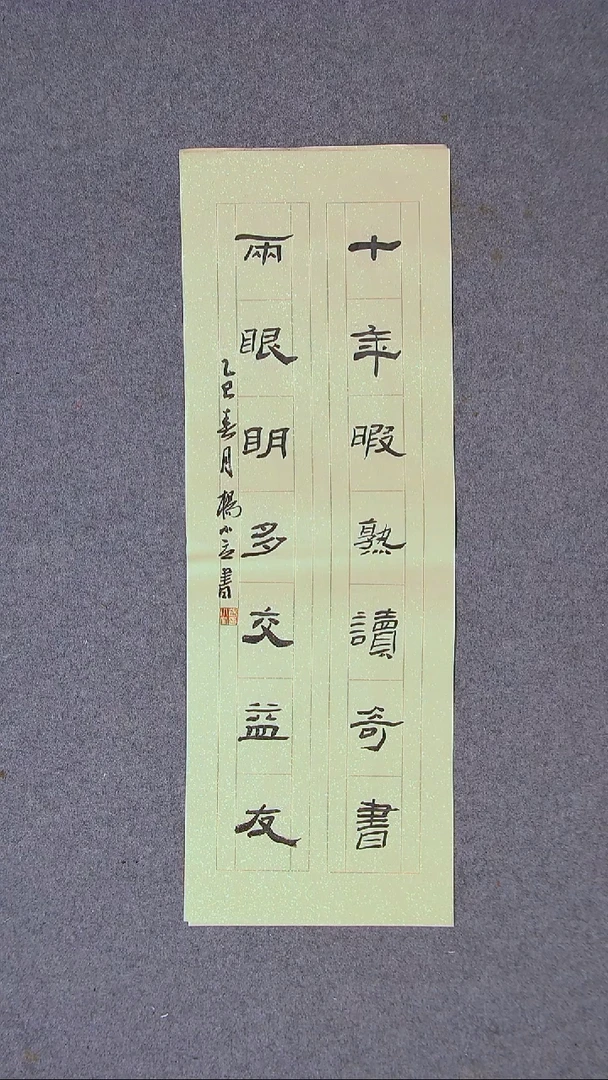 十年暇熟讀奇書
兩眼明多交益友
乙巳春月楊小云書